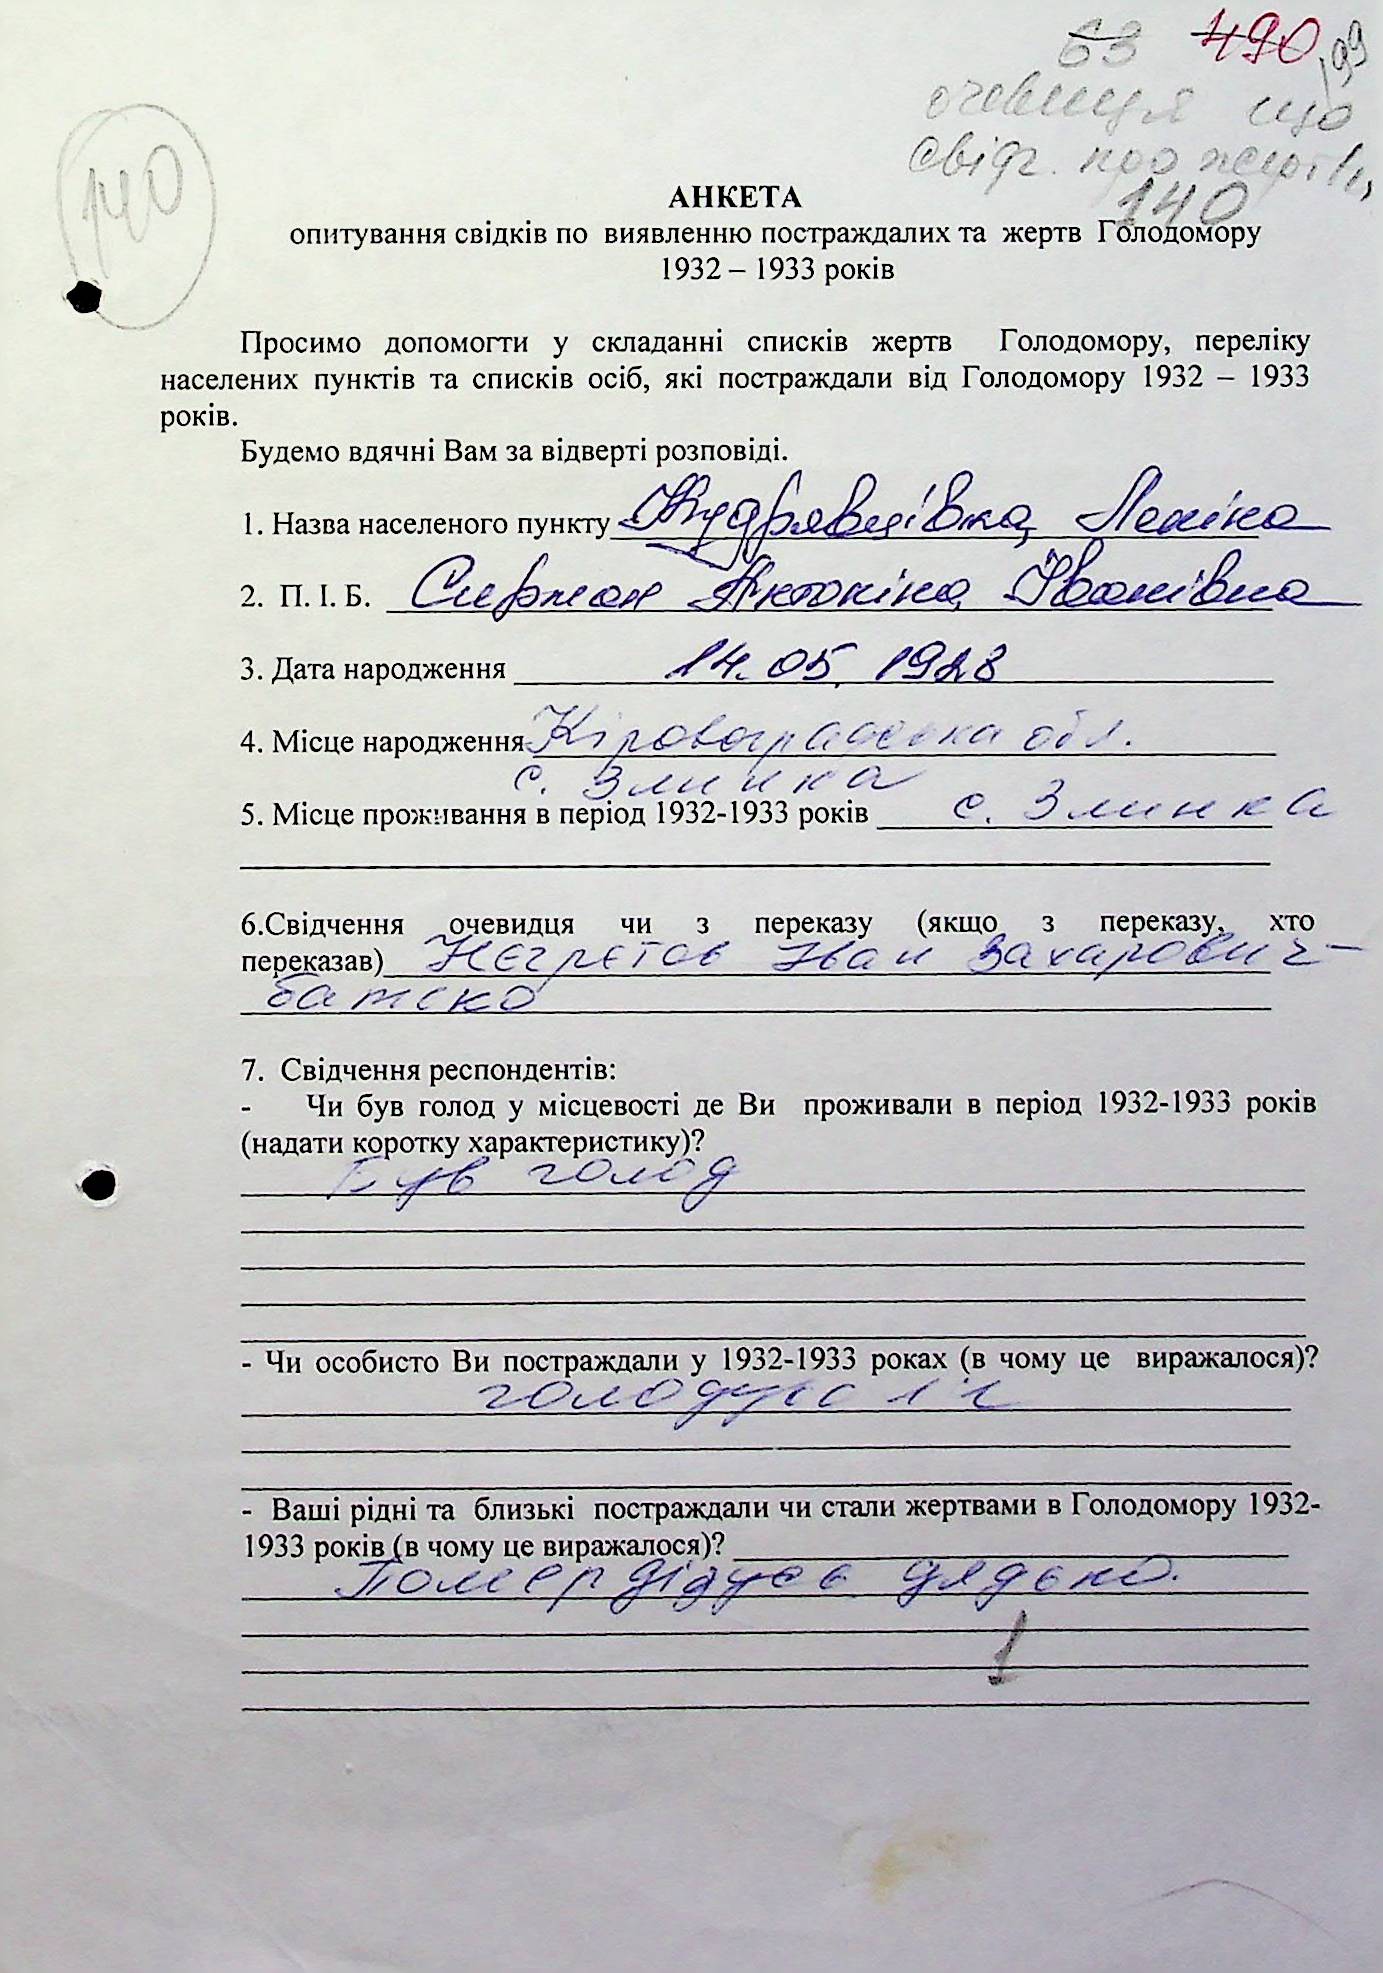 63 490 199
очевидця що
свідч. про жертви
140
140
АНКЕТА
опитування свідків по виявленню постраждалих та жертв Голодомору
1932 – 1933 років
Просимо допомогти у складанні списків жертв Голодомору, переліку
населених пунктів та списків осіб, які постраждали від Голодомору 1932 – 1933
років.
Будемо вдячні Вам за відверті розповіді.
1. Назва населеного пункту Кудрявцівка, Леніна
2. П. І. Б. Антоніна Іванівна
3. Дата народження 14.05.1928
4. Місце народження Кіровоградська обл.
с. Злинка
5. Місце проживання в період 1932-1933 років с. Злинка
6.Свідчення очевидця чи з переказу (якщо з переказу, хто
переказав) Нєгрєтов Іван Захарович –
батько
7. Свідчення респондентів:
- Чи був голод у місцевості де Ви проживали в період 1932-1933 років
(надати коротку характеристику)?
Був голод
- Чи особисто Ви постраждали у 1932-1933 роках (в чому це виражалося)?
- Ваші рідні та близькі постраждали чи стали жертвами в Голодомору 1932-
1933 років (в чому це виражалося)?
Помер дідусь дядько.
1